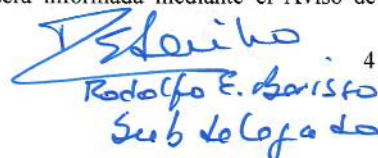 será informada mediante el Aviso de
4
Rodolfo E. Barisso
Sub delegado